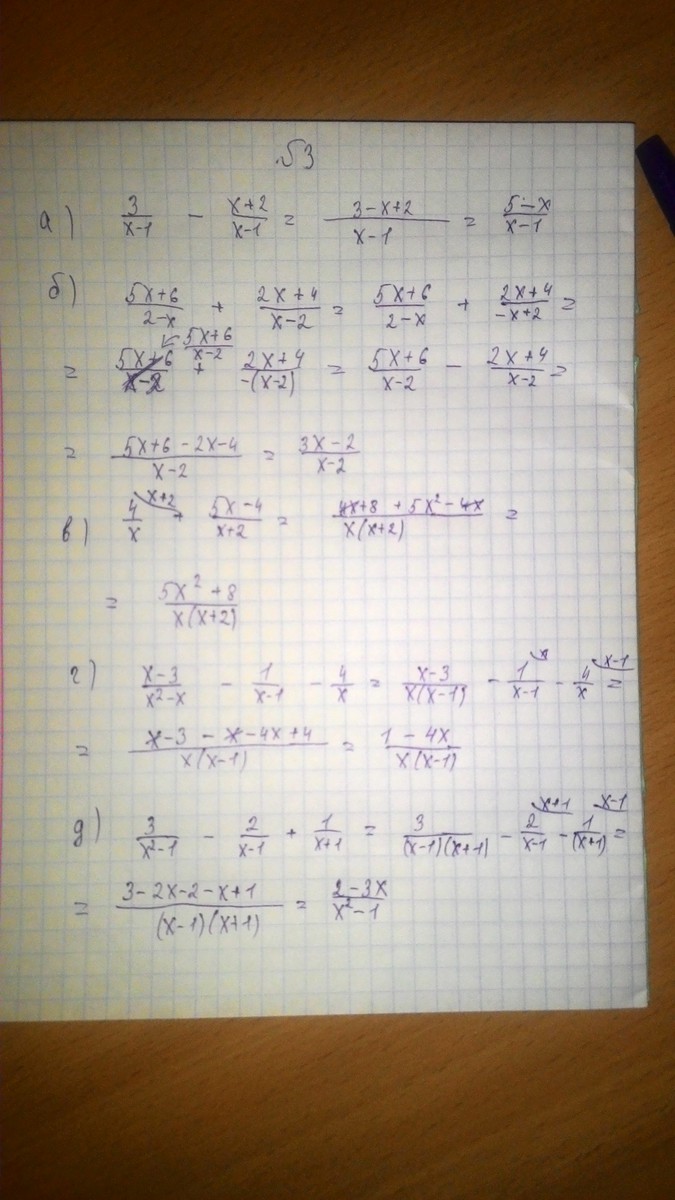 №3
а) 3/(x-1) - (x+2)/(x-1) = (3-x+2)/(x-1) = (5-x)/(x-1)
б) (5x+6)/(2-x) + (2x+4)/(x-2) = (5x+6)/(2-x) + (2x+4)/(-x+2) =
= (5x+6)/(x-2) (5x+6)/(x-2) + (2x+4)/(-(x-2)) = (5x+6)/(x-2) - (2x+4)/(x-2) =
= (5x+6-2x-4)/(x-2) = (3x-2)/(x-2)
в) 4/x^(x+2) + (5x-4)/(x+2) = (4x+8+5x²-4x)/(x(x+2)) =
= (5x²+8)/(x(x+2))
г) (x-3)/(x²-x) - 1/(x-1) - 4/x = (x-3)/(x(x-1)) - 1/(x-1)^x - 4/x^(x-1) =
= (x-3-x-4x+4)/(x(x-1)) = (1-4x)/(x(x-1))
д) 3/(x²-1) - 2/(x-1) + 1/(x+1) = 3/((x-1)(x+1)) - 2/(x-1)^(x+1) - 1/(x+1)^(x-1) =
= (3-2x-2-x+1)/((x-1)(x+1)) = (2-3x)/(x²-1)